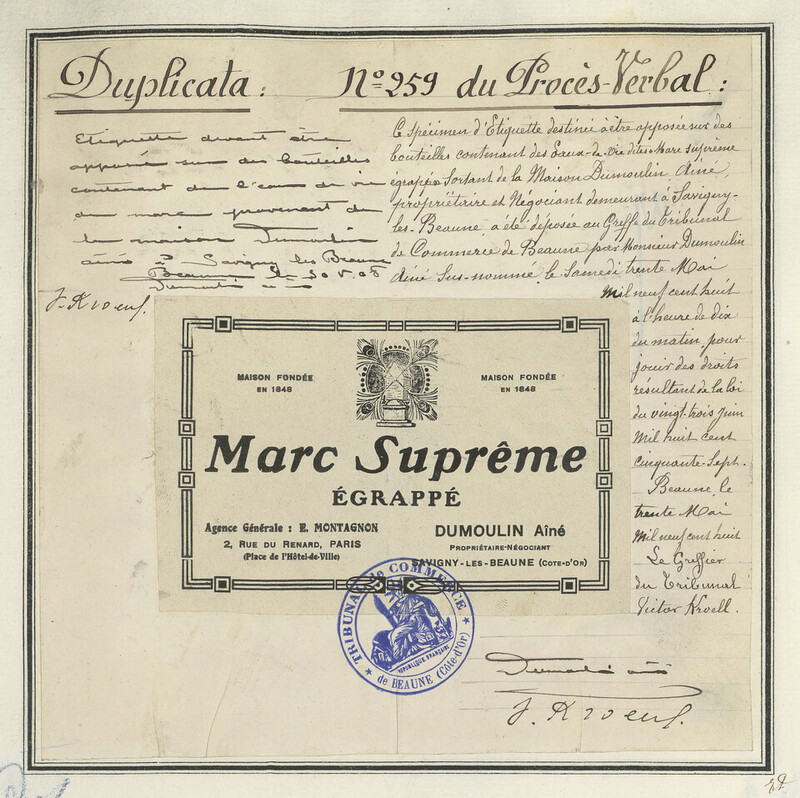 Duplicata : N° 259 du Procès-Verbal :
Etiquette devant être
apposée sur des bouteilles
contenant de l'eau de vie
de marc provenant de
la maison Dumoulin
aîné à Savigny les Beaune
Beaune le 30.V.08
Dumoulin aîné
Ce spécimen d'Etiquette destinée à être apposée sur des
bouteilles contenant des Eaux-de-vie dites Marc suprême
égrappée Sortant de la Maison Dumoulin, Aîné,
propriétaire et Négociant demeurant à Savigny-
les-Beaune, a été déposée au Greffe du Tribunal
de Commerce de Beaune par Monsieur Dumoulin
Aîné Sus-nommé, le Samedi trente Mai
Mil neuf cent huit
à l'heure de dix
du matin, pour
jouir des droits
résultant de la loi
du vingt-trois juin
Mil huit cent
cinquante-Sept.
Beaune, le
trente Mai
Mil neuf cent huit
Le Greffier
du Tribunal
Victor Kroell.
MAISON FONDÉE
EN 1848
MAISON FONDÉE
EN 1848
Marc Suprême
ÉGRAPPÉ
Agence Générale : E. MONTAGNON
2, RUE DU RENARD, PARIS
(Place de l'Hôtel-de-Ville)
DUMOULIN Aîné
PROPRIÉTAIRE-NÉGOCIANT
SAVIGNY-LES-BEAUNE (COTE-D'OR)
TRIBUNAL de COMMERCE
RÉPUBLIQUE FRANÇAISE
de BEAUNE (Côte-d'Or)
Dumoulin aîné